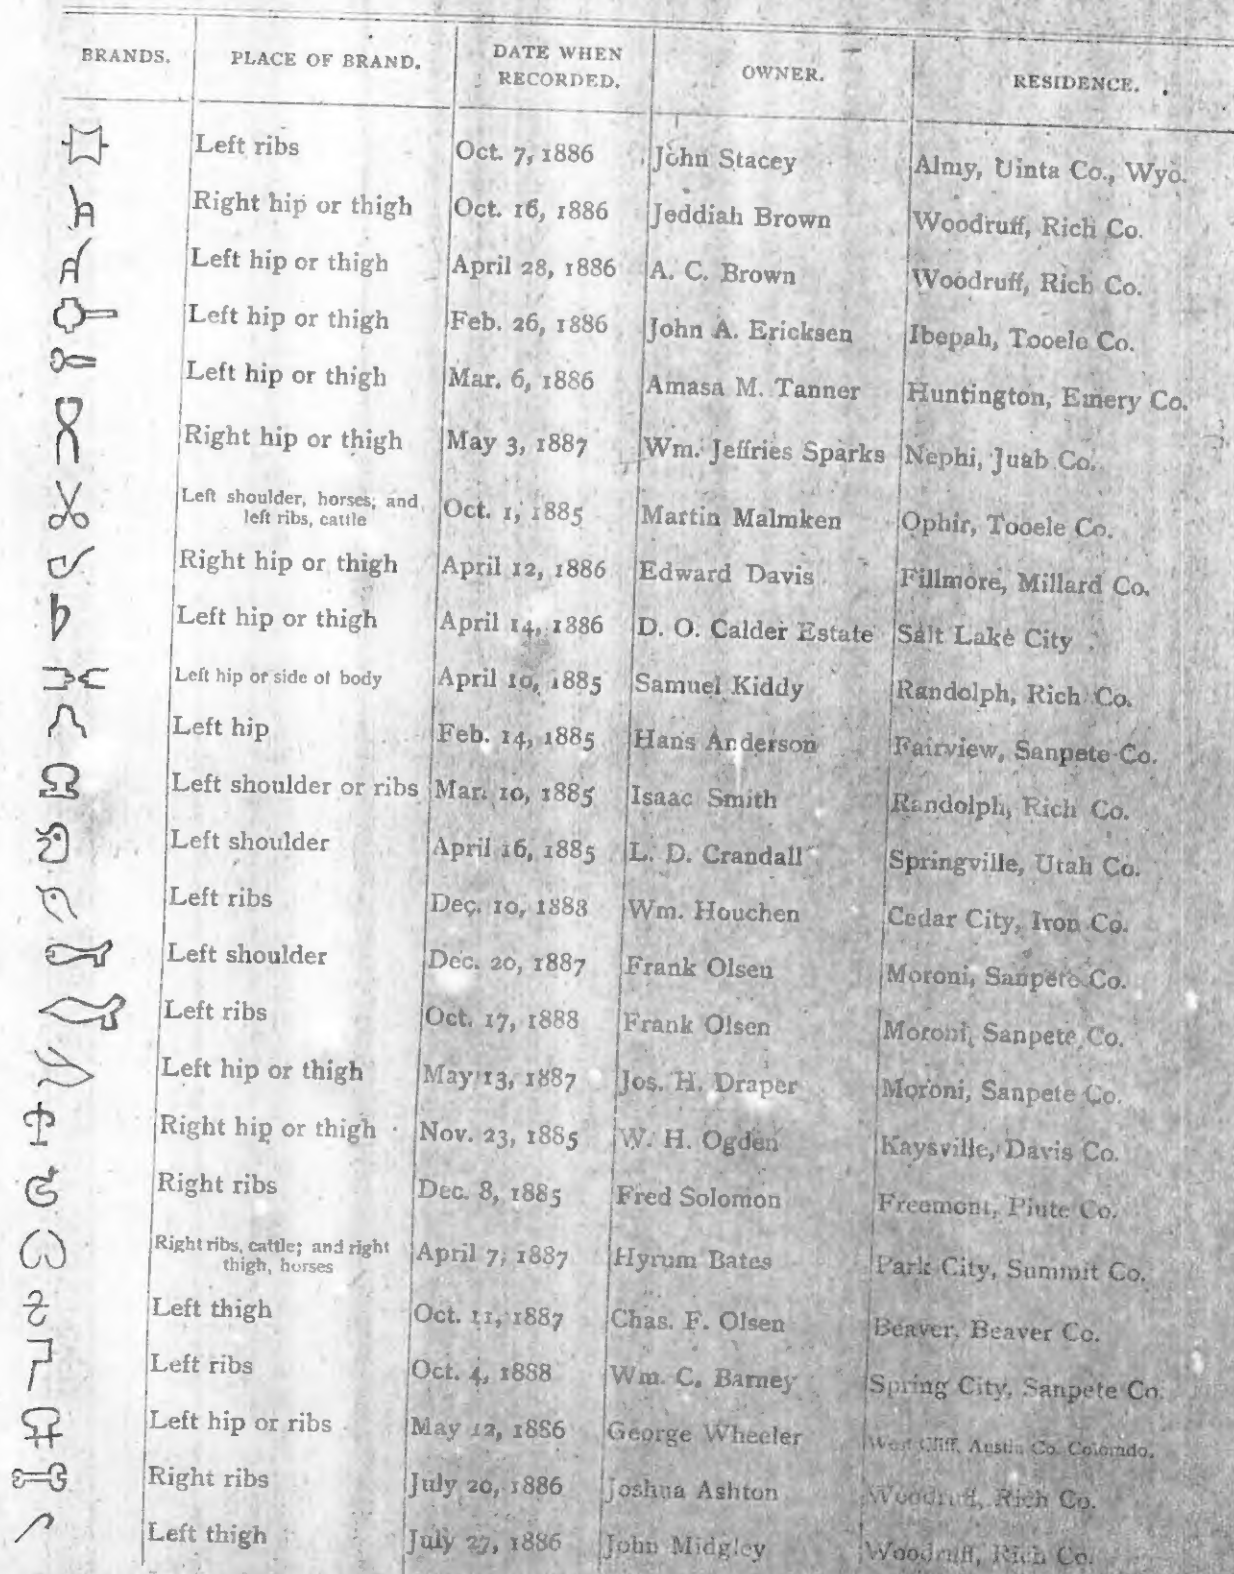 BRANDS. PLACE OF BRAND. DATE WHEN RECORDED. OWNER. RESIDENCE.
Left ribs Oct. 7, 1886 John Stacey Almy, Uinta Co., Wyo.
Right hip or thigh Oct. 16, 1886 Jeddiah Brown Woodruff, Rich Co.
Left hip or thigh April 28, 1886 A. C. Brown Woodruff, Rich Co.
Left hip or thigh Feb. 26, 1886 John A. Ericksen Ibepah, Tooele Co.
Left hip or thigh Mar. 6, 1886 Amasa M. Tanner Huntington, Emery Co.
Right hip or thigh May 3, 1887 Wm. Jeffries Sparks Nephi, Juab Co.
Left shoulder, horses; and
left ribs, cattle Oct. 1, 1885 Martin Malmken Ophir, Tooele Co.
Right hip or thigh April 12, 1886 Edward Davis Fillmore, Millard Co.
Left hip or thigh April 14, 1886 D. O. Calder Estate Salt Lake City
Left hip or side of body April 10, 1885 Samuel Kiddy Randolph, Rich Co.
Left hip Feb. 14, 1885 Hans Anderson Fairview, Sanpete Co.
Left shoulder or ribs Mar. 10, 1885 Isaac Smith Randolph, Rich Co.
Left shoulder April 16, 1885 L. D. Crandall Springville, Utah Co.
Left ribs Dec. 10, 1888 Wm. Houchen Cedar City, Iron Co.
Left shoulder Dec. 20, 1887 Frank Olsen Moroni, Sanpete Co.
Left ribs Oct. 17, 1888 Frank Olsen Moroni, Sanpete Co.
Left hip or thigh May 13, 1887 Jos. H. Draper Moroni, Sanpete Co.
Right hip or thigh Nov. 23, 1885 W. H. Ogden Kaysville, Davis Co.
Right ribs Dec. 8, 1885 Fred Solomon Freemont, Piute Co.
Right ribs, cattle; and right
thigh, horses April 7, 1887 Hyrum Bates Park City, Summit Co.
Left thigh Oct. 11, 1887 Chas. F. Olsen Beaver, Beaver Co.
Left ribs Oct. 4, 1888 Wm. C. Barney Spring City, Sanpete Co.
Left hip or ribs May 12, 1886 George Wheeler West Cliff, Austin Co. Colorado.
Right ribs July 20, 1886 Joshua Ashton Woodruff, Rich Co.
Left thigh July 27, 1886 John Midgley Woodruff, Rich Co.